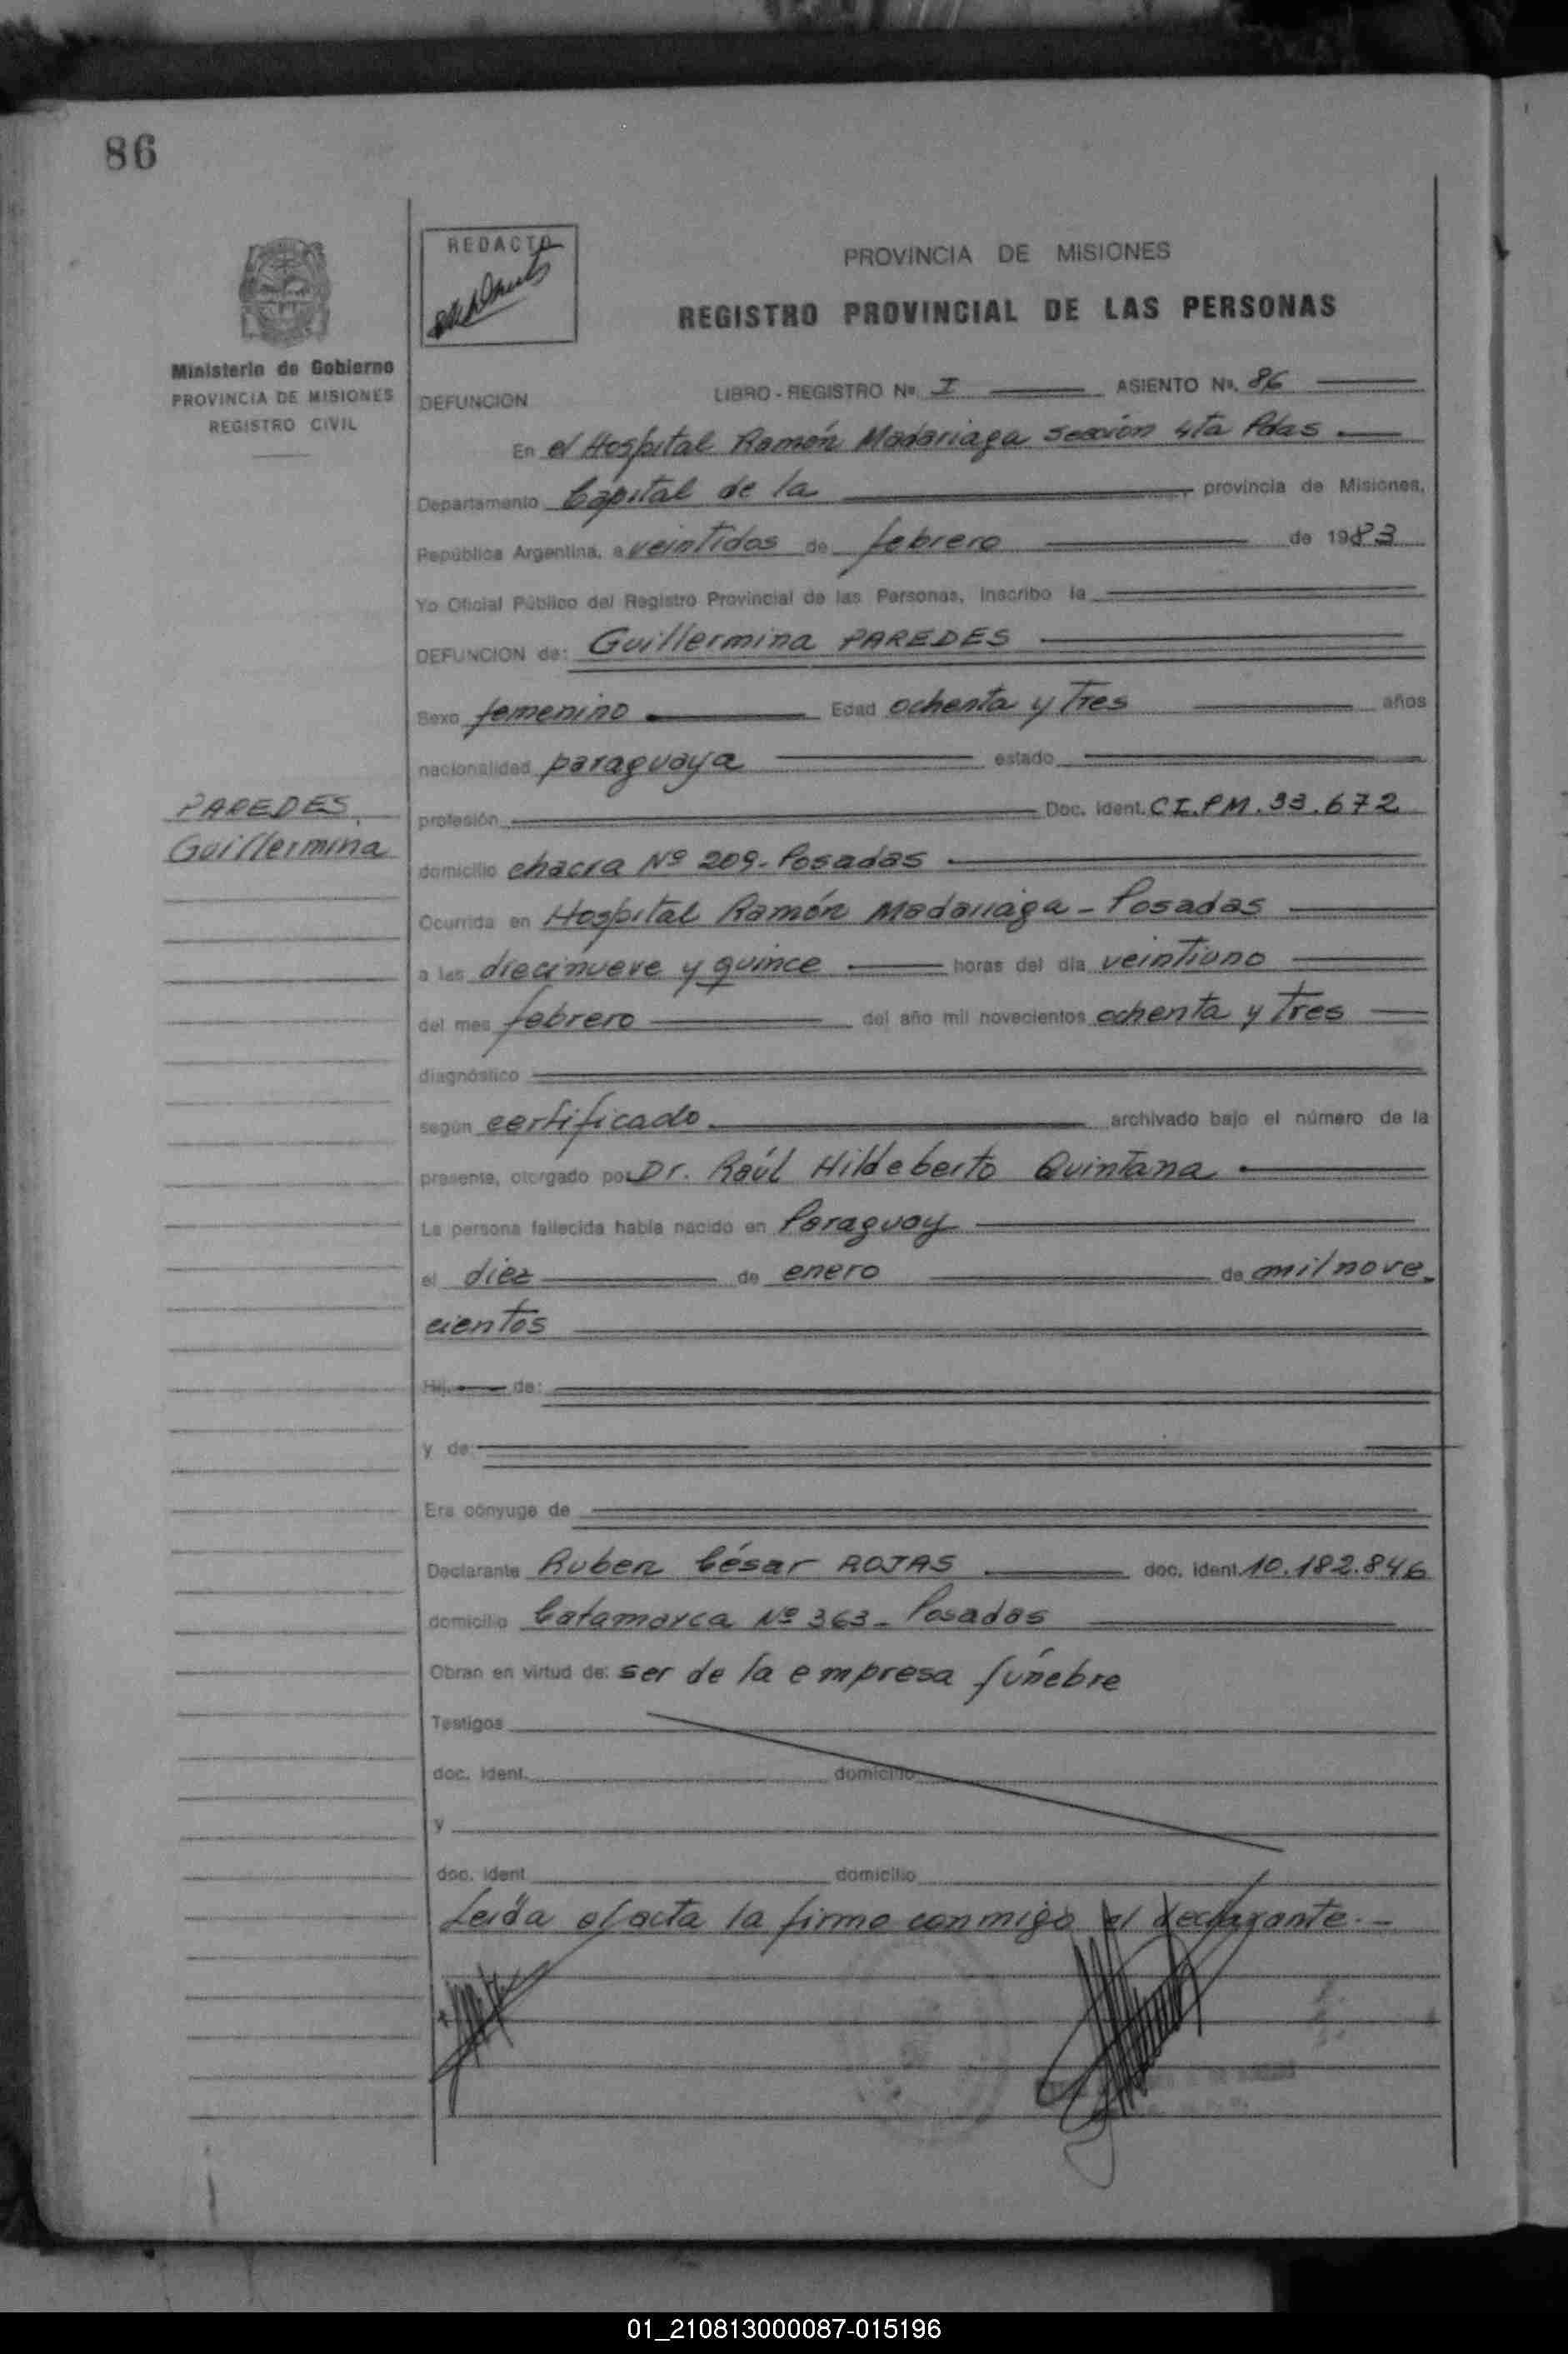 86
REDACTO
PROVINCIA DE MISIONES
REGISTRO PROVINCIAL DE LAS PERSONAS
Ministerio de Gobierno
PROVINCIA DE MISIONES
REGISTRO CIVIL
DEFUNCION LIBRO - REGISTRO Nº. I ASIENTO Nº. 86
En el Hospital Ramón Madariaga sección 4ta Pdas
Departamento Capital de la provincia de Misiones,
República Argentina, a veintidos de febrero de 1983
Yo Oficial Público del Registro Provincial de las Personas, inscribo la
DEFUNCION de: Guillermina PAREDES
Sexo femenino Edad ochenta y Tres años
nacionalidad paraguaya estado
PAREDES,
Guillermina
profesión Doc. Ident. C.I.P.M. 33.672
domicilio chacra Nº 209 - Posadas
Ocurrida en Hospital Ramón Madariaga - Posadas
a las diecinueve y quince horas del día veintiuno
del mes febrero del año mil novecientos ochenta y Tres
diagnóstico
según certificado archivado bajo el número de la
presente, otorgado por Dr. Raúl Hildeberto Quintana
La persona fallecida había nacido en Paraguay
el diez de enero de mil nove
cientos
Hij de:
y de:
Era cónyuge de
Declarante Ruben César ROJAS doc. Ident. 10.182.846
domicilio Catamarca Nº 363 - Posadas
Obran en virtud de: ser de la empresa fúnebre
Testigos
doc. ident. domicilio
y
doc. ident. domicilio
Leída el acta la firma conmigo el declarante.-
01_210813000087-015196